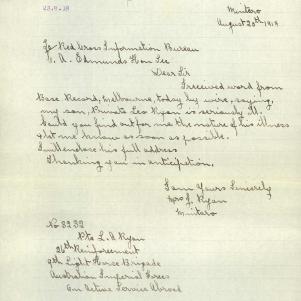 23.9.18
Mintaro
August 20th 1918
To Red Cross Information Bureau
C. A. Edmunds Hon Sec
Dear Sir
I received word from
Base Record, Melbourne, today by wire, saying
my son, Private Leo Ryan is seriously ill.
Could you find out for me the nature of his illness
& let me know as soon as possible.
I will enclose his full address
Thanking you in anticipation.
I am Yours Sincerely
Mrs J. Ryan
Mintaro
No 3232
Pte L. A Ryan
26th Reinforcement
9th Light Horse Brigade
Australian Imperial Forces
On Active Service Abroad